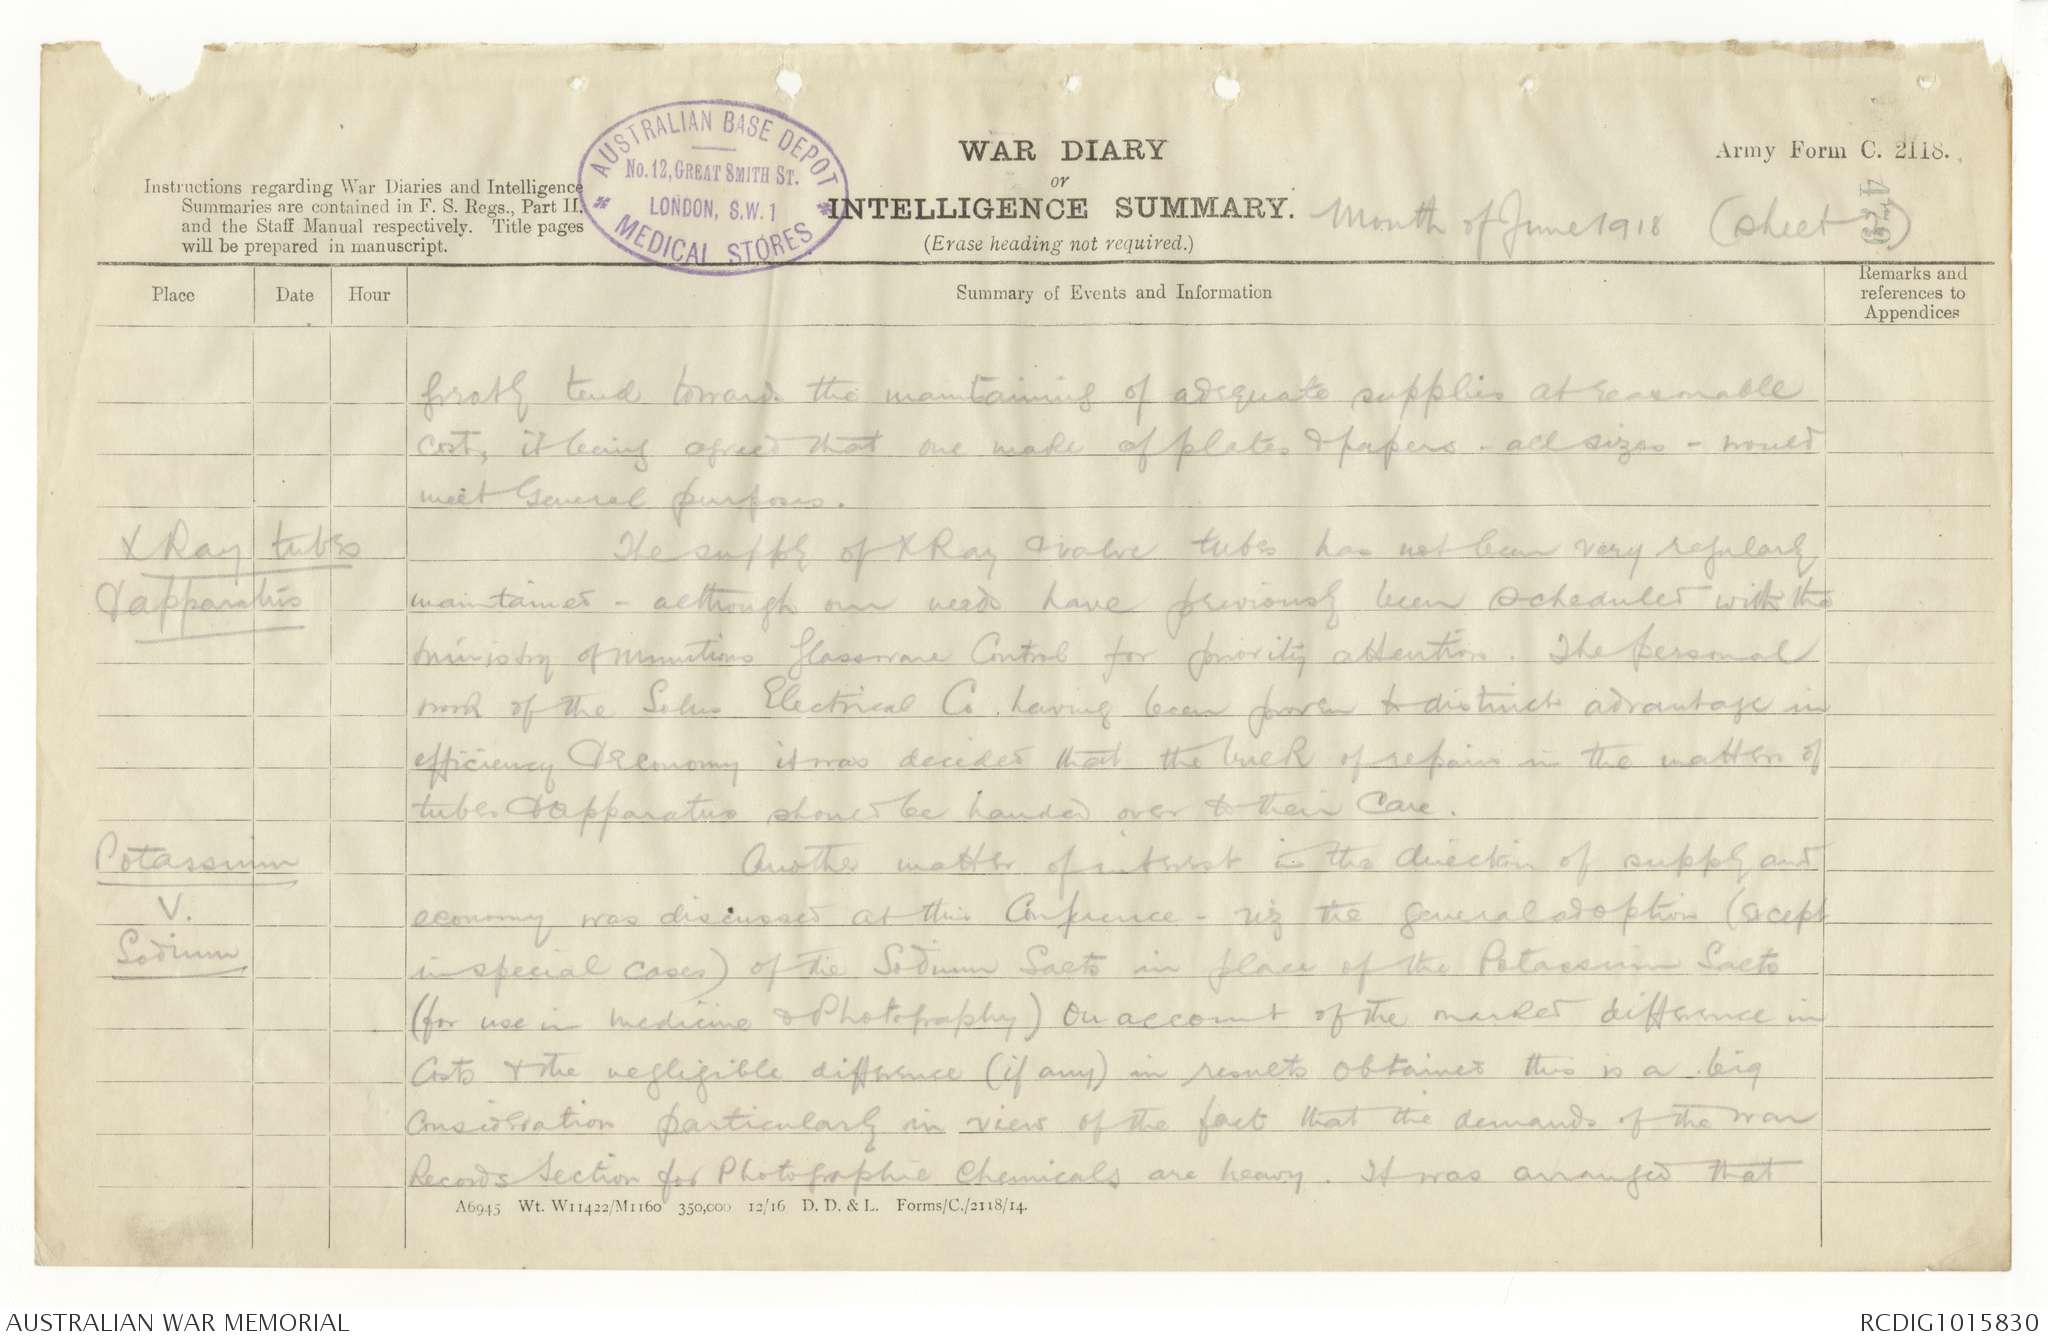 AUSTRALIAN BASE DEPOT
No. 12, GREAT SMITH ST.
LONDON, S.W.1
MEDICAL STORES
WAR DIARY
or
INTELLIGENCE SUMMARY.
(Erase heading not required.)
Army Form C. 2118.
Instructions regarding War Diaries and Intelligence
Summaries are contained in F. S. Regs., Part II.
and the Staff Manual respectively. Title pages
will be prepared in manuscript.
Month of June 1918 (Sheet
Place Date Hour Summary of Events and Information Remarks and
references to
Appendices
greatly tend towards the maintaining of adequate supplies at reasonable
cost, it being agreed that one make of plates & papers - all sizes - would
meet General purposes.
X Ray tubes The supply of X Ray & valve tubes has not been very regularly
& apparatus maintained - although our needs have previously been scheduled with the
Ministry of Munitions Glassware Control for priority attention. The personal
work of the Solus Electrical Co. having been proven to distinct advantage in
efficiency & economy it was decided that the bulk of repairs in the matter of
tubes & apparatus should be handed over to their care.
Potassium Another matter of interest in the direction of supply and
V. economy was discussed at this Conference - viz the general adoption (except
Sodium in special cases) of the Sodium Salts in place of the Potassium Salts
(for use in medicine & Photography) On account of the marked difference in
Costs & the negligible difference (if any) in results obtained this is a big
consideration particularly in view of the fact that the demands of the War
Records Section for Photographic Chemicals are heavy. It was arranged that
A6945 Wt. W11422/M1160 350,000 12/16 D. D. & L. Forms/C./2118/14.
AUSTRALIAN WAR MEMORIAL
RCDIG1015830